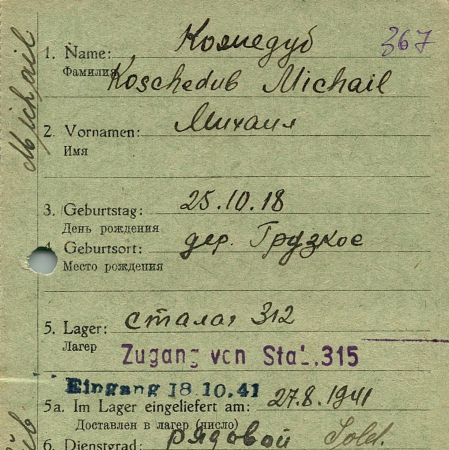 Кожедуб
367
1. Name:
Фамилия Koschedub Michail
Michail
2. Vornamen: Михаил
Имя
3. Geburtstag: 25.10.18
День рождения
4 Geburtsort: дер. Грузкое
Место рождения
5. Lager: сталаг 312
Лагерь
Zugang von Stal.315
Eingang 18.10.41
5a. Im Lager eingeliefert am: 27.8.1941
Доставлен в лагерь (число)
6. Dienstgrad: рядовой Sold.